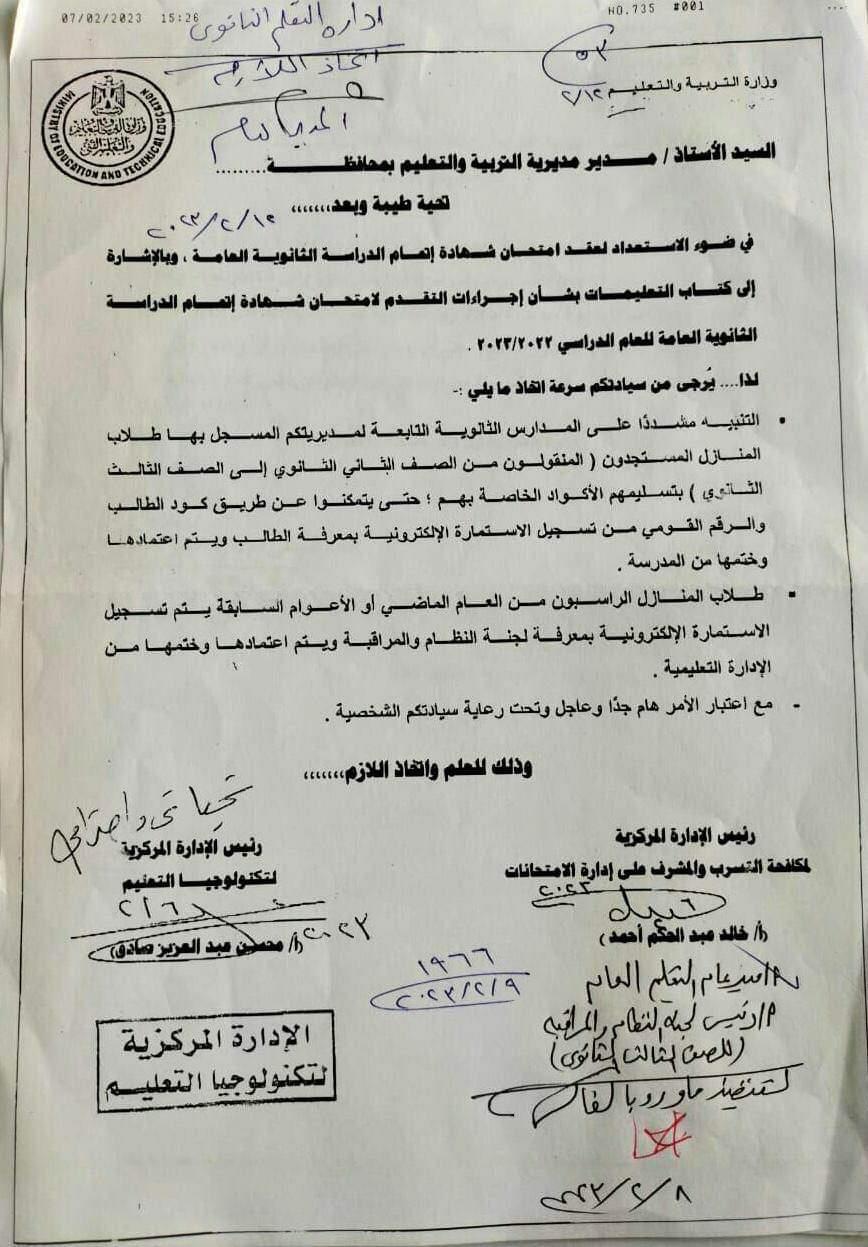 07/02/2023 15:26
NO.735 #001
ادارة التعليم الثانوى
اتخاذ اللازم
٥٣
وزارة التربية والتعليم
٢/١٢
وزارة التربية والتعليم
والتعليم الفني
MINISTRY OF EDUCATION AND TECHNICAL EDUCATION
السيد الأستاذ / مدير مديرية التربية والتعليم بمحافظة.........
تحية طيبة وبعد،،،،،،،
٢٠٢٣/٢/١٢
في ضوء الاستعداد لعقد امتحان شهادة إتمام الدراسة الثانوية العامة ، وبالإشارة
إلى كتاب التعليمات بشأن إجراءات التقدم لامتحان شهادة إتمام الدراسة
الثانوية العامة للعام الدراسي ٢٠٢٣/٢٠٢٢ .
لذا.... يُرجى من سيادتكم سرعة اتخاذ ما يلي :-
• التنبيه مشددًا على المدارس الثانوية التابعة لمديريتكم المسجل بها طلاب
المنازل المستجدون ( المنقولون من الصف الثاني الثانوي إلى الصف الثالث
الثانوي ) بتسليمهم الأكواد الخاصة بهم ؛ حتى يتمكنوا عن طريق كود الطالب
والرقم القومي من تسجيل الاستمارة الإلكترونية بمعرفة الطالب ويتم اعتمادها
وختمها من المدرسة .
▪ طلاب المنازل الراسبون من العام الماضي أو الأعوام السابقة يتم تسجيل
الاستمارة الإلكترونية بمعرفة لجنة النظام والمراقبة ويتم اعتمادها وختمها من
الإدارة التعليمية .
- مع اعتبار الأمر هام جدًا وعاجل وتحت رعاية سيادتكم الشخصية .
وذلك للعلم واتخاذ اللازم،،،،،،،
تحياتى واحترامى
رئيس الإدارة المركزية
لمكافحة التسرب والمشرف على إدارة الامتحانات
٢٠٢٣
(أ/ خالد عبد الحكم أحمد )
رئيس الإدارة المركزية
لتكنولوجيا التعليم
٢٠٢٣
(أ/ محسن عبد العزيز صادق)
١٩٦٦
٢٠٢٣/٢/٩
مدير عام التعليم العام
أ/ رئيس لجنة النظام والمراقبة
(للصف الثالث الثانوى)
٢٠٢٣/٢/٨
الإدارة المركزية
لتكنولوجيا التعليم